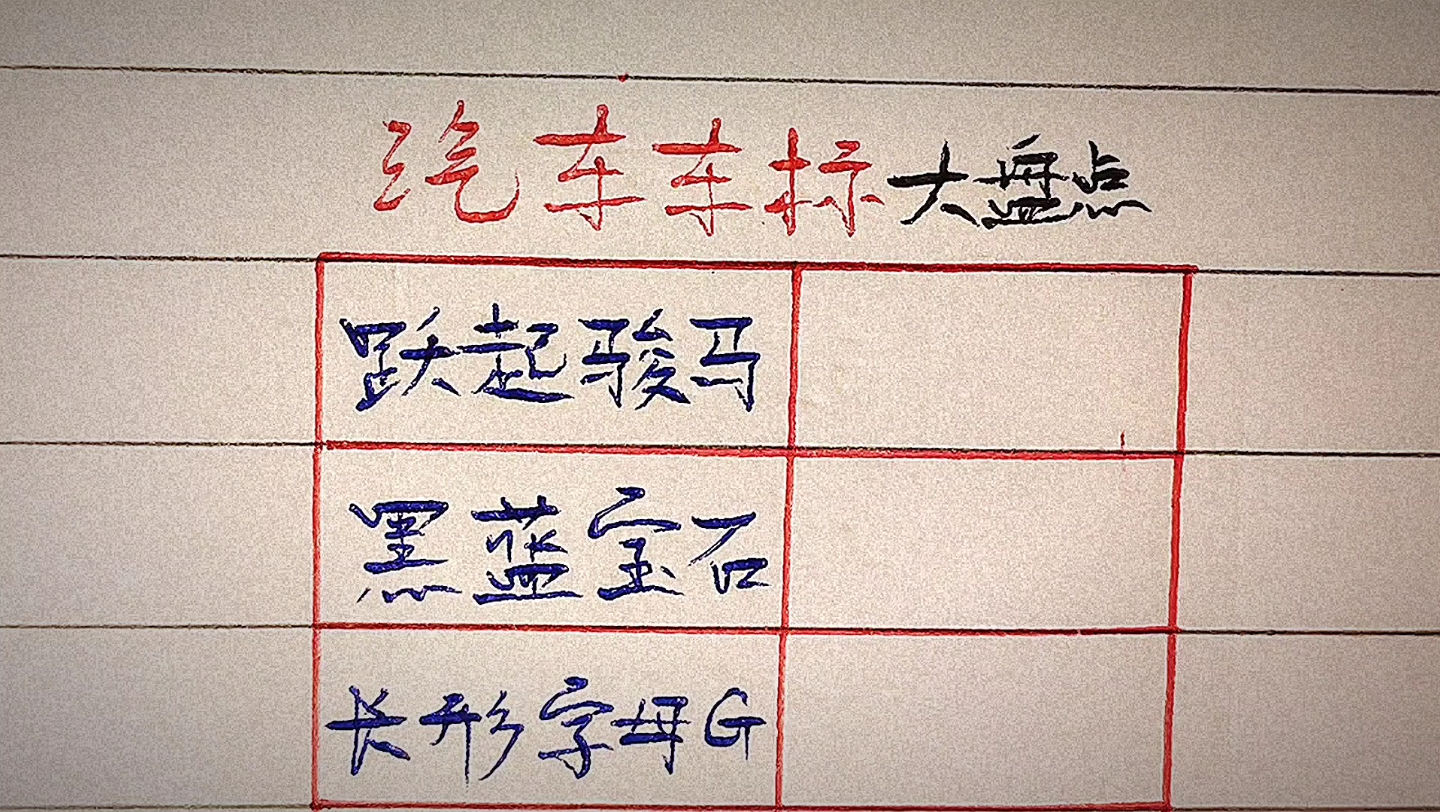 汽车车标大盘点
跃起骏马
黑蓝宝石
长形字母G